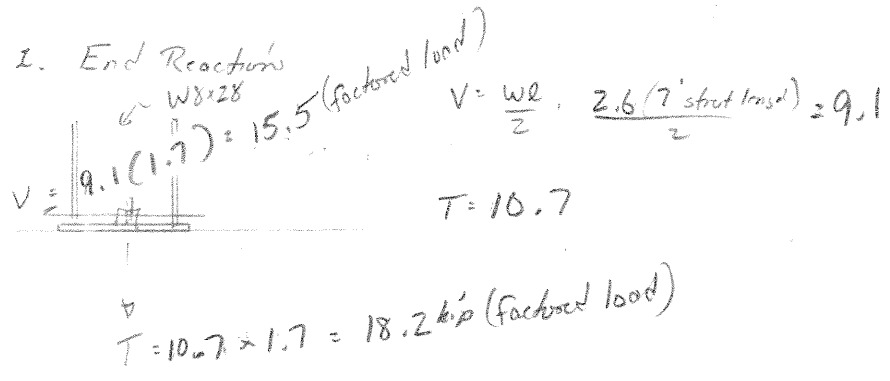 1. End Reactions
W8x28
V = 9.1(1.7) = 15.5 (factored load)
V = wl/2 . 2.6(7' strut length)/2 = 9.1
T = 10.7
T = 10.7 x 1.7 = 18.2 kip (factored load)